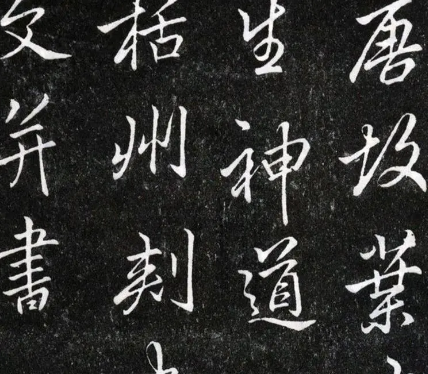 唐故葉
生神道
栝州刺
文并書